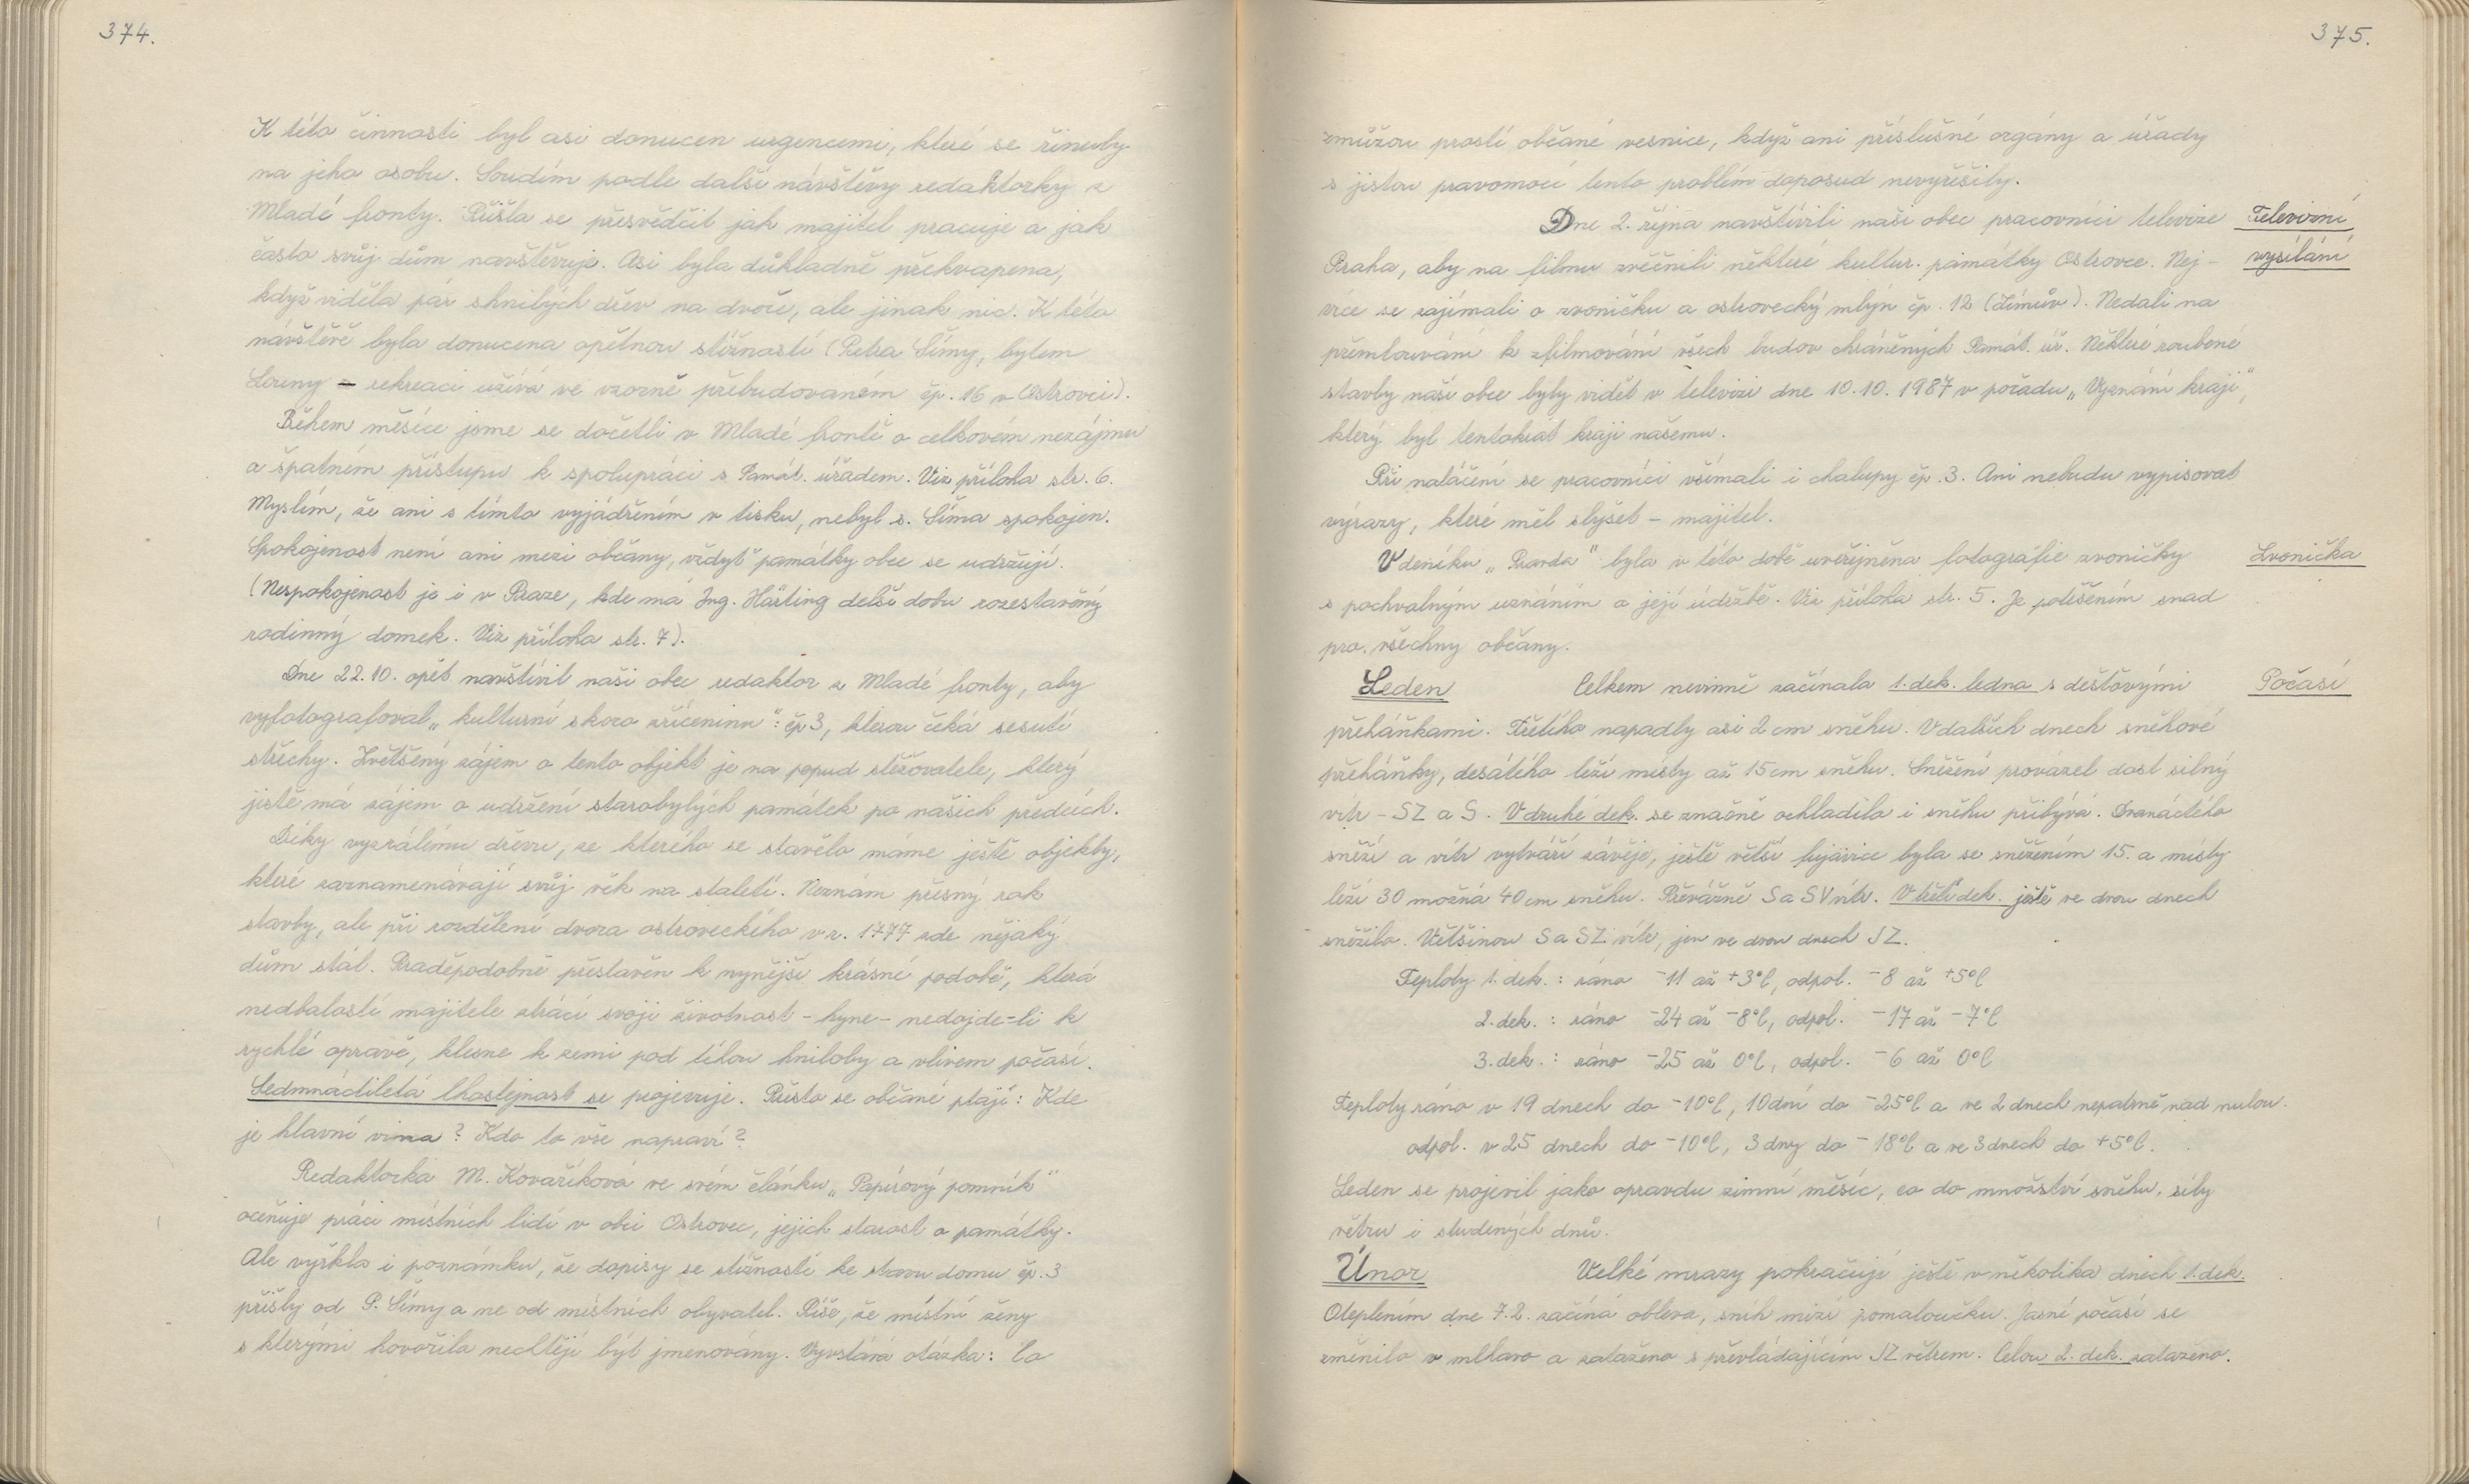 374.
K této činnosti byl asi donucen urgencemi, které se řinuly
na jeho osobu. Soudím podle další návštěvy redaktorky z
Mladé fronty. Přišla se přesvědčit jak majitel pracuje a jak
často svůj dům navštěvuje. Asi byla důkladně překvapena,
když viděla pár shnilých dřev na dvoře, ale jinak nic. K této
návštěvě byla donucena opětnou stížností (Petra Šímy, bytem
Louny – rekreaci užívá ve vzorně přebudovaném čp. 16 v Ostrovci).
Během měsíce jsme se dočetli v Mladé frontě o celkovém nezájmu
a špatném přístupu k spolupráci s Památ. úřadem. Viz příloha str. 6.
Myslím, že ani s tímto vyjádřením v tisku, nebyl s. Šíma spokojen.
Spokojenost není ani mezi občany, vždyť památky obce se udržují.
(Nespokojenost je i v Praze, kde má Ing. Härting delší dobu rozestavěný
rodinný domek. Viz příloha str. 7).
Dne 22.10. opět navštívil naši obec redaktor z Mladé fronty, aby
vyfotografoval „kulturní skoro zříceninu": čp 3, kterou čeká sesutí
střechy. Zvětšený zájem o tento objekt je na popud stěžovatele, který
jistě má zájem o udržení starobylých památek po našich předcích.
Díky vyzrálému dřevu, ze kterého se stavělo máme ještě objekty,
které zaznamenávají svůj věk na staletí. Neznám přesný rok
stavby, ale při rozdělení dvora ostroveckého v r. 1777 zde nějaký
dům stál. Praděpodobně přestavěn k nynější krásné podobě, která
nedbalostí majitele ztrácí svoji životnost - hyne - nedojde=li k
rychlé opravě, klesne k zemi pod tíhou hniloby a vlivem počasí.
Sedmnáctiletá lhostejnost se projevuje. Přesto se občané ptají: Kde
je hlavní vina? Kdo to vše napraví?
Redaktorka M. Kovaříková ve svém článku „Papírový pomník"
oceňuje práci místních lidí v obci Ostrovec, jejich starost o památky.
Ale vyřkla i poznámku, že dopisy se stížností ke stavu domu čp. 3
přišly od P. Šímy a ne od místních obyvatel. Píše, že místní ženy
s kterými hovořila nechtějí být jmenovány. Vyvstává otázka: Co
375.
zmůžou prostí občané vesnice, když ani příslušné orgány a úřady
s jistou pravomocí tento problém doposud nevyřešily.
Dne 2. října navštívili naši obec pracovníci televize Televizní
Praha, aby na filmu zvěčnili některé kultur. památky Ostrovce. Nej- vysílání
více se zajímali o zvoničku a ostrovecký mlýn čp. 12 (Šímův). Nedali na
přemlouvání k zfilmování všech budov chráněných Památ. úř. Některé roubené
stavby naší obce byly vidět v televizi dne 10.10. 1987 v pořadu „Vyznání kraji",
který byl tentokrát kraji našemu.
Při natáčení se pracovníci všímali i chalupy čp. 3. Ani nebudu vypisovat
výrazy, které měl slyšet – majitel.
V deníku „Pravda" byla v této době uveřejněna fotografie zvoničky Zvonička
s pochvalným uznáním o její údržbě. Viz příloha str. 5. Je potěšením snad
pro všechny občany.
Leden Celkem nevinně začínala 1. dek. ledna s dešťovými Počasí
přeháňkami. Třetího napadly asi 2 cm sněhu. V dalších dnech sněhové
přeháňky, desátého leží místy až 15 cm sněhu. Sněžení provázel dost silný
vítr – SZ a S. V druhé dek. se značně ochladilo i sněhu přibývá. Dvanáctého
sněží a vítr vytváří závěje, ještě větší fujavice byla se sněžením 15. a místy
leží 30 možná 40 cm sněhu. Převážně S a SV vítr. V třetí dek. ještě ve dvou dnech
sněžilo. Většinou S a SZ vítr, jen ve dvou dnech JZ.
Teploty 1. dek. : ráno -11 až +3°C, odpol. -8 až +5°C
2. dek. : ráno -24 až -8°C, odpol. -17 až -7°C
3. dek. : ráno -25 až 0°C, odpol. -6 až 0°C
Teploty ráno v 19 dnech do -10°C, 10 dní do -25°C a ve 2 dnech nepatrně nad nulou.
odpol. v 25 dnech do -10°C, 3 dny do -18°C a ve 3 dnech do +5°C.
Leden se projevil jako opravdu zimní měsíc, co do množství sněhu, síly
větru i studených dnů.
Únor Velké mrazy pokračují ještě v několika dnech 1. dek.
Oteplením dne 7.2. začíná obleva, sníh mizí pomaloučku. Jasné počasí se
změnilo v mlhavo a zataženo s převládajícím JZ větrem. Celou 2. dek. zataženo.